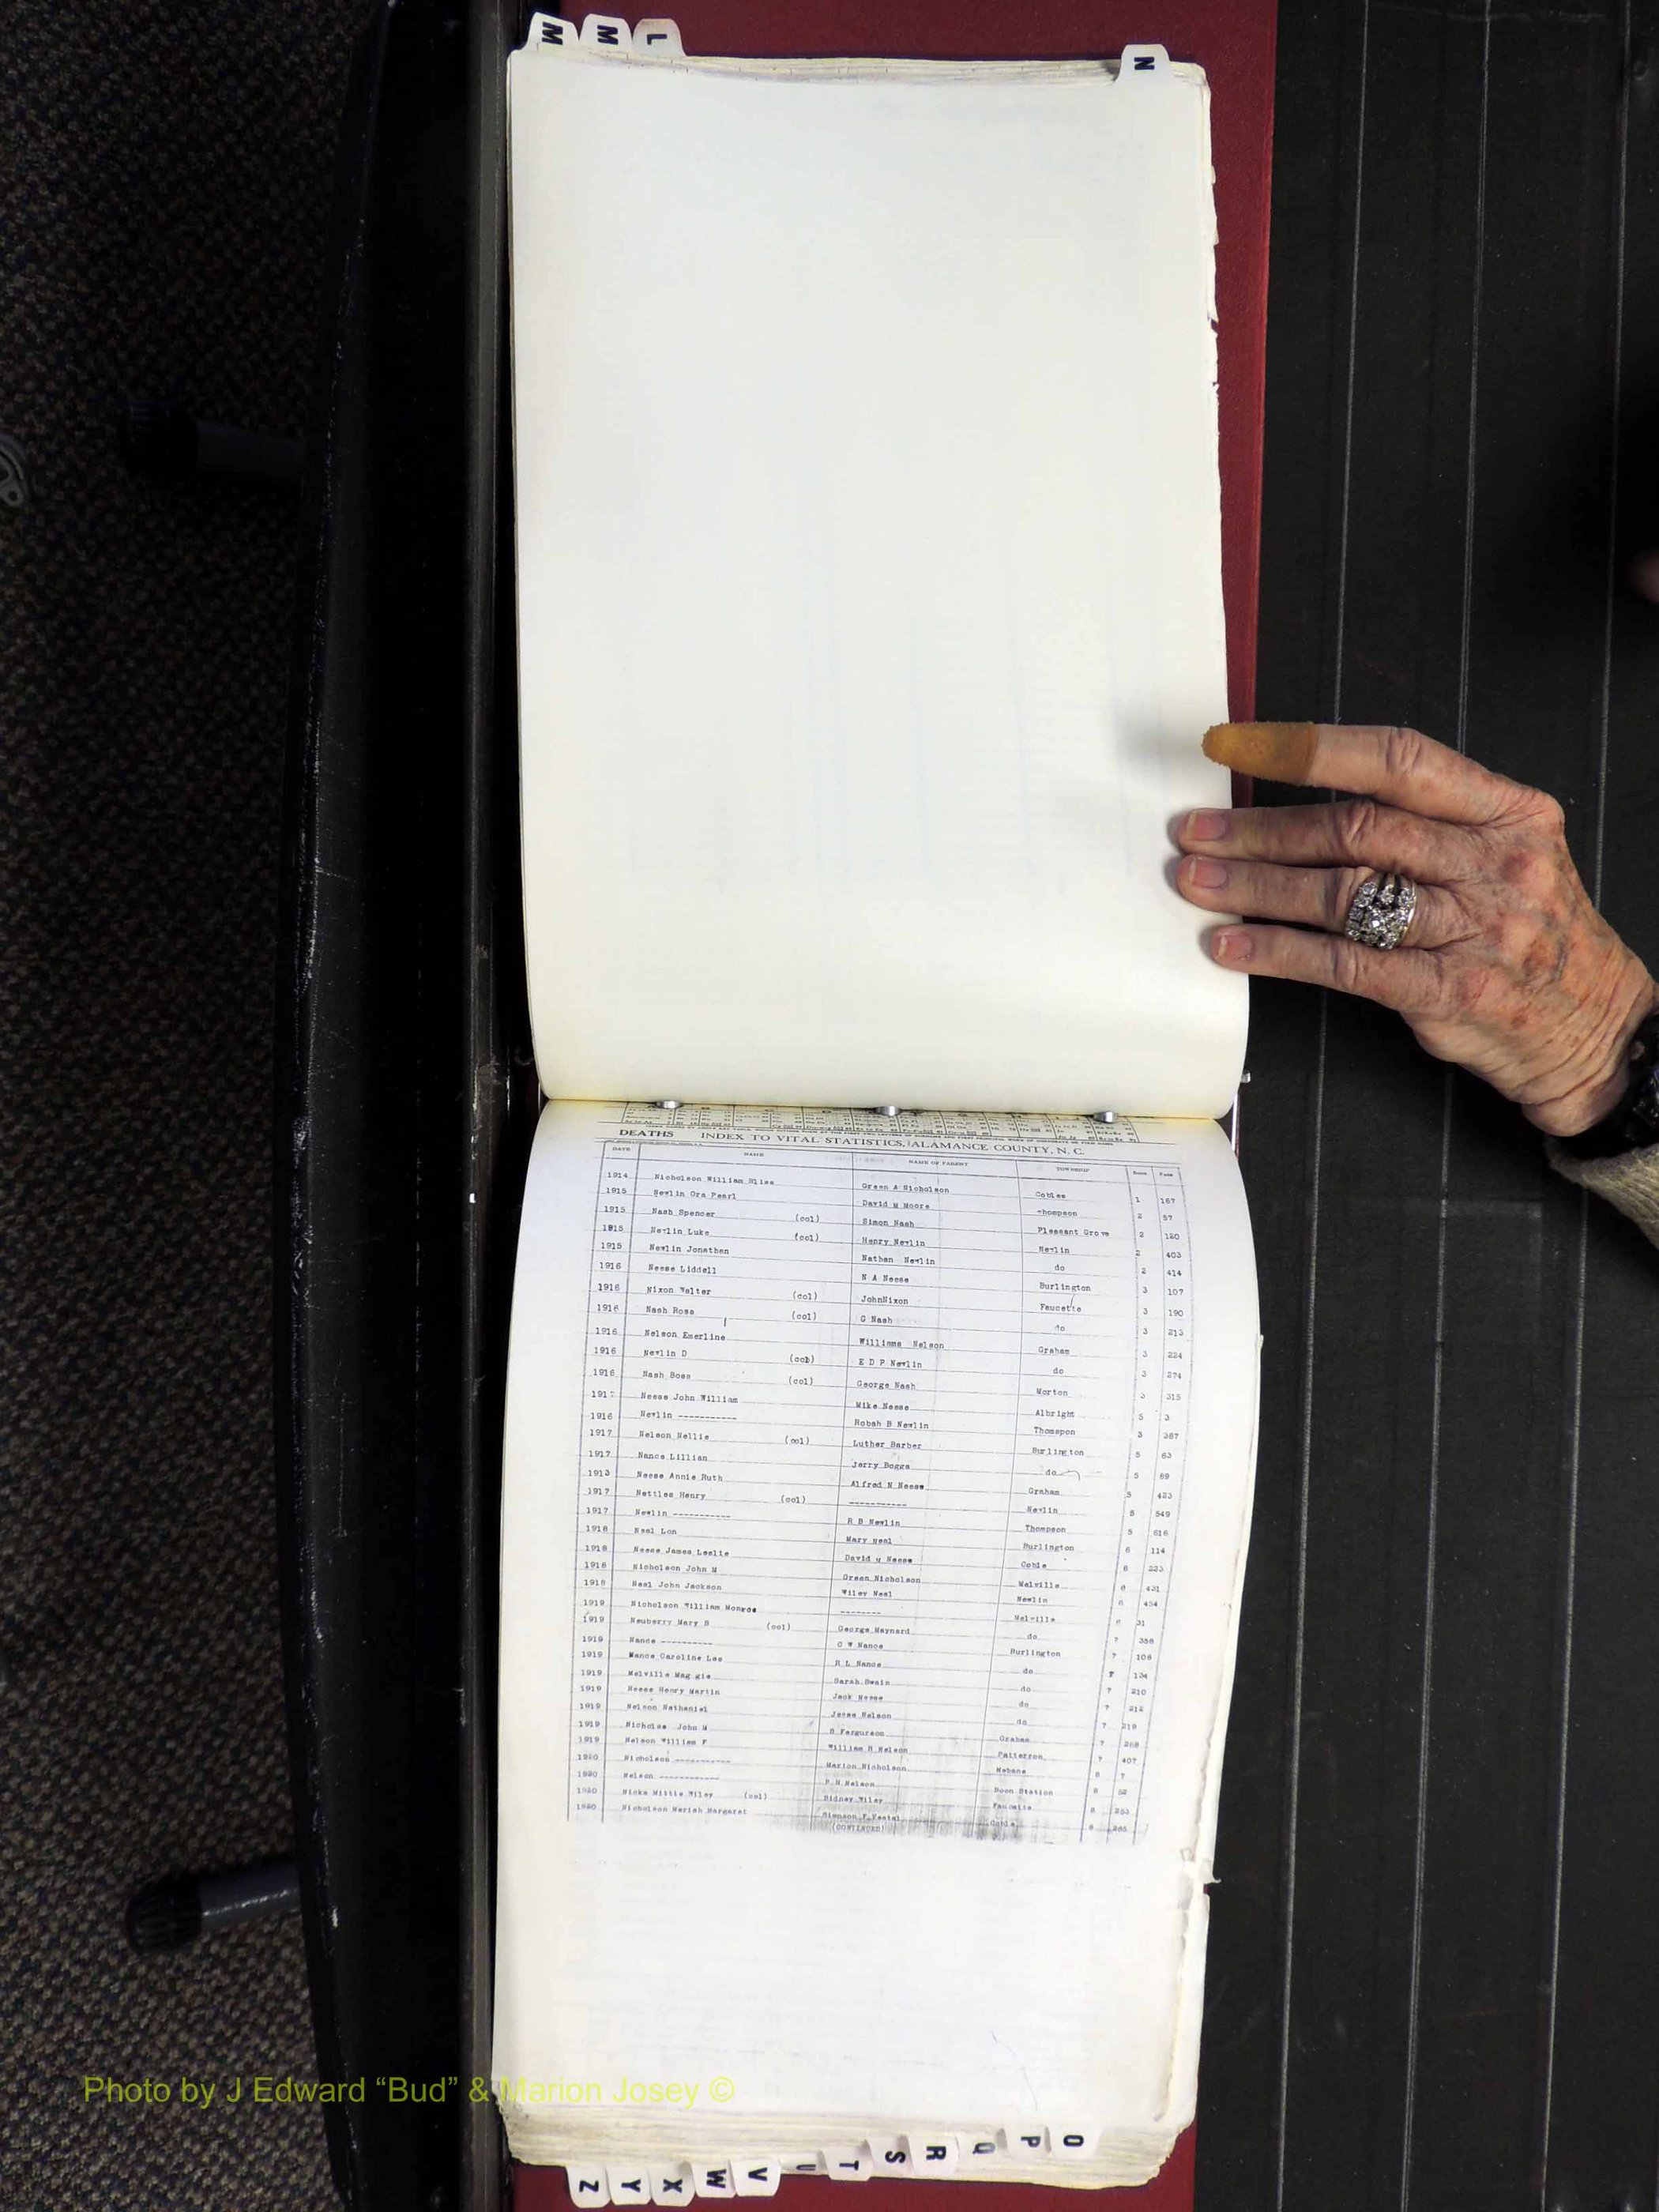 M M L
N
DEATHS INDEX TO VITAL STATISTICS, ALAMANCE COUNTY, N. C.
DATE NAME NAME OF PARENT TOWNSHIP BOOK PAGE
1914 Nicholson William Bliss Green A Nicholson Cobles 1 167
1915 Newlin Ora Pearl David M Moore Thompson 2 57
1915 Nash Spencer (col) Simon Nash Pleasant Grove 2 120
1915 Newlin Luke (col) Henry Newlin Newlin 2 403
1915 Newlin Jonathan Nathan Newlin do 2 414
1916 Neese Liddell N A Neese Burlington 3 107
1916 Nixon Walter (col) JohnNixon Faucette 3 190
1916 Nash Rosa (col) G Nash do 3 213
1916 Nelson Emerline Williams Nelson Graham 3 224
1916 Newlin D (col) E D P Newlin do 3 274
1916 Nash Boss (col) George Nash Morton 3 315
191 Neese John William Mike Neese Albright 5 3
1916 Newlin ----------- Robah B Newlin Thomspon 3 387
1917 Nelson Nellie (col) Luther Barber Burlington 5 63
1917 Nance Lillian Jerry Boggs do 5 69
1913 Neese Annie Ruth Alfred N Neese Graham 5 423
1917 Nettles Henry (col) ----------- Newlin 5 549
1917 Newlin ----------- R B Newlin Thompson 5 616
1918 Neal Lon Mary Neal Burlington 6 114
1918 Neese James Leslie David M Neese Coble 6 223
1918 Nicholson John M Green Nicholson Melville 6 431
1918 Neal John Jackson Wiley Neal Newlin 6 454
1919 Nicholson William Monroe -------- Melville 31
1919 Neuberry Mary B (col) George Maynard do 7 358
1919 Nance ---------- C W Nance Burlington 7 108
1919 Nance Caroline Lee R L Nance do 7 134
1919 Melville Maggie Sarah Swain do 7 210
1919 Neese Henry Martin Jack Neese do 7 212
1919 Nelson Nathaniel Jesse Nelson do 7 219
1919 Nicholse John M S Ferguson Graham 7 268
1919 Nelson William F William B Nelson Patterson 7 407
1920 Nicholson ----------- Marion Nicholson Mebane 8 7
1920 Nelson ------------ P H Nelson Boon Station 8 52
1920 Nicks Mittie Wiley (col) Sidney Wiley Faucette 8 253
1920 Nicholson Mariah Margaret Simpson F Vestal Coble 8 265
(CONTINUED)
Photo by J Edward “Bud” & Marion Josey ©
O P Q R S T U V W X Y Z